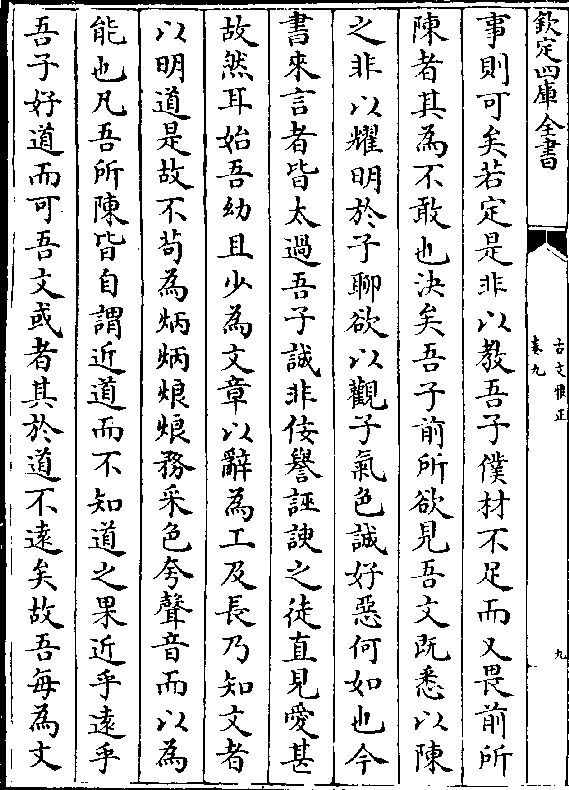 欽定四庫全書
古文雅正
卷九
九
事則可矣若定是非以教吾子僕材不足而又畏前所
陳者其為不敢也決矣吾子前所欲見吾文既悉以陳
之非以耀明於子聊欲以觀子氣色誠好惡何如也今
書來言者皆太過吾子誠非佞譽誣諛之徒直見愛甚
故然耳始吾幼且少為文章以辭為工及長乃知文者
以明道是故不茍為炳炳烺烺務采色夸聲音而以為
能也凡吾所陳皆自謂近道而不知道之果近乎遠乎
吾子好道而可吾文或者其於道不遠矣故吾每為文